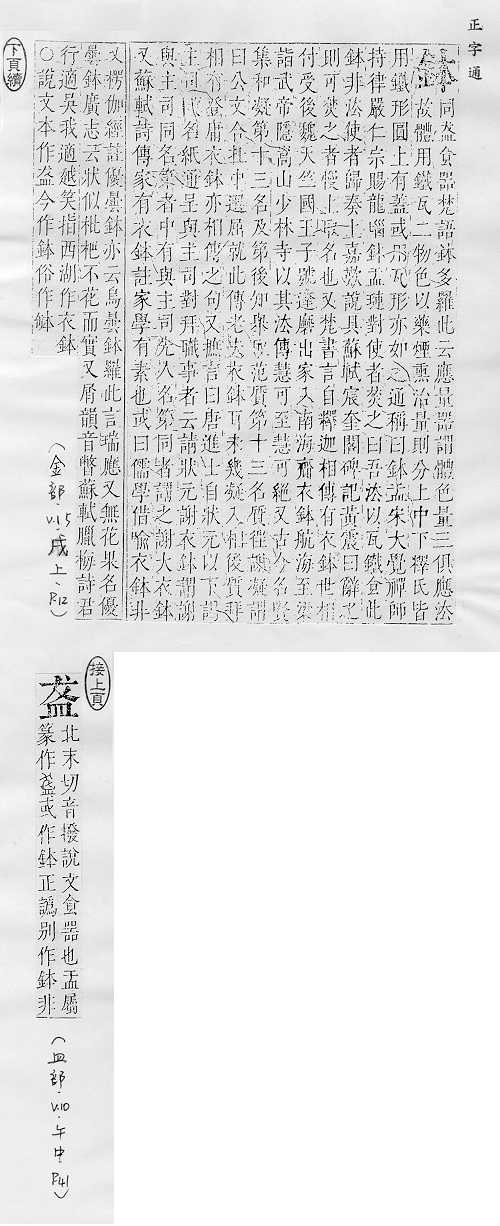 正字通
下頁續
同盋食器梵語鉢多羅此云應量器謂體色量三俱應法
故體用鐵瓦二物色以藥煙熏治量則分上中下釋氏皆
用鐵形圓上有蓋或用瓦形亦如之通稱曰鉢盂宋大覺禪師
持律嚴仁宗賜龍腦鉢盂璉對使者焚之曰吾法以瓦鐵食此
鉢非法使者歸奏上嘉歎說具蘇軾宸奎閣碑記黃震曰辭之
則可焚之者慢上取名也又梵書言自釋迦相傳有衣鉢世相
付受後魏天竺國王子號達磨出家入南海齎衣鉢航海至梁
詣武帝隱嵩山少林寺以其法傳慧可至慧可絕又古今名賢
集和凝第十三名及第後知舉取范質第十三名質徃謝凝謂
曰公文合在中選屈就此傳老夫衣鉢耳未幾凝入相後質拜
相有登庸衣鉢亦相傳之句又摭言曰唐進士自狀元以下詣
主司以名紙通呈與主司對拜職事者云請狀元謝衣鉢謂謝
與主司同名第者中有與主司先人名第同者謂之謝大衣鉢
又蘇軾詩傳家有衣鉢註家學有素也或曰儒學借喩衣鉢非
又楞伽經註優曇鉢亦云烏曇鉢羅此言瑞應又無花果名優
曇鉢廣志云狀似枇杷不花而實又屑韻音瞥蘇軾臘梅詩君
行適吳我適越笑指西湖作衣鉢
○說文本作盋今作鉢俗作缽
(金部·V.15戌上·P.12)
接上頁
盋
北末切音撥說文食器也盂屬
篆作盋或作鉢正譌別作鉢非
(皿部·V.10·午中P.41)